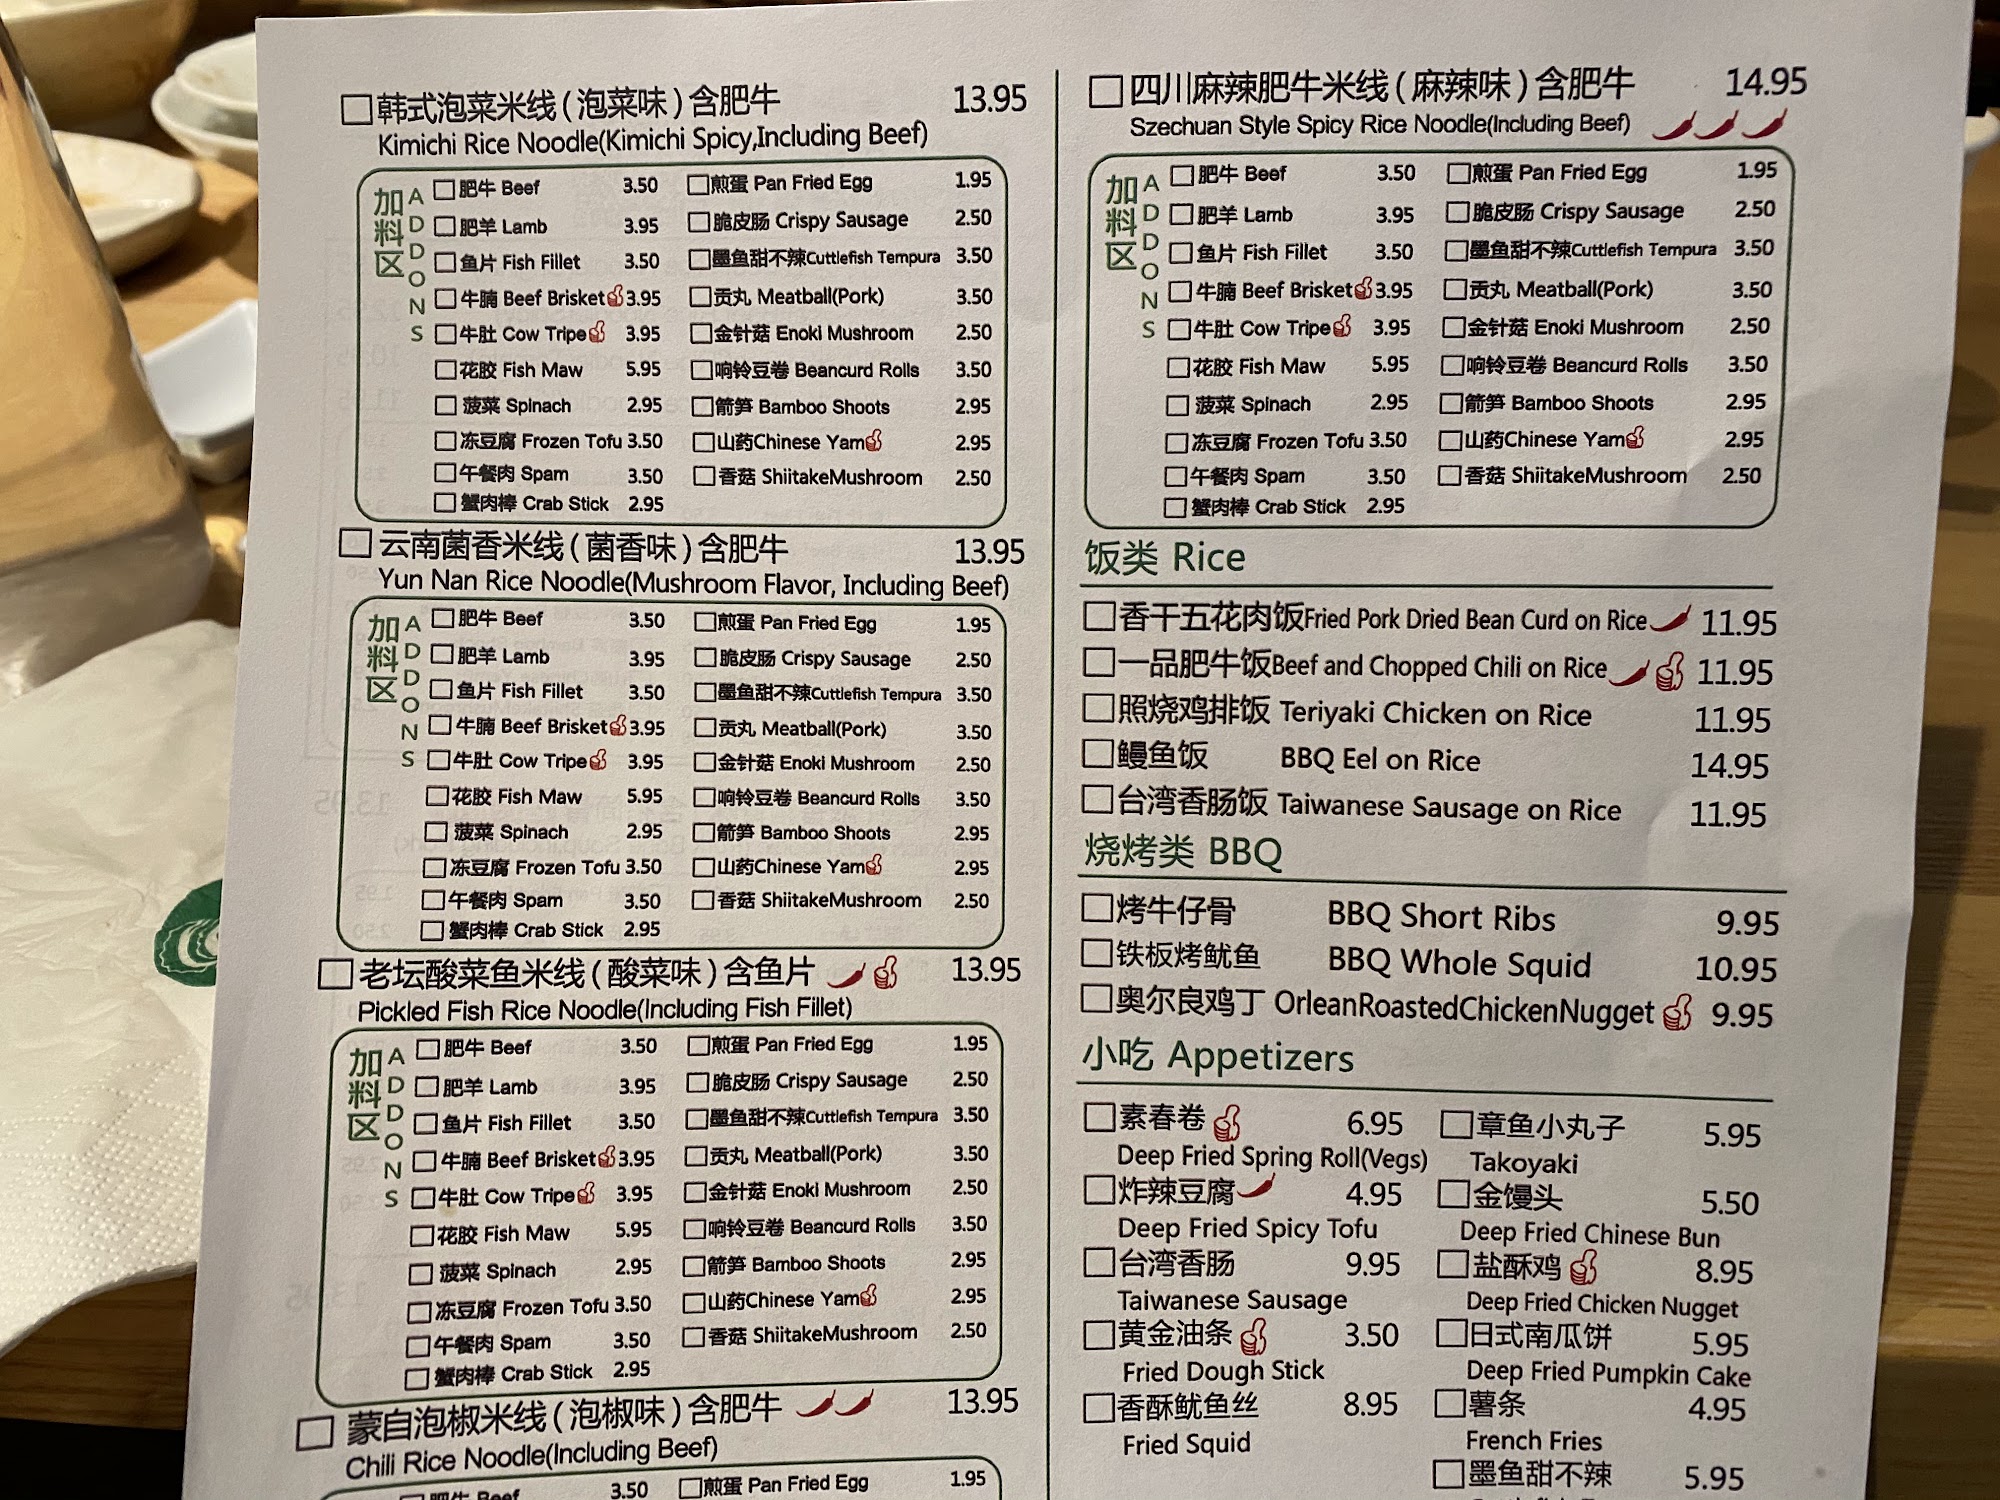 韩式泡菜米线(泡菜味)含肥牛 13.95
Kimichi Rice Noodle(Kimichi Spicy,Including Beef)
加料区 ADDONS
肥牛 Beef 3.50 煎蛋 Pan Fried Egg 1.95
肥羊 Lamb 3.95 脆皮肠 Crispy Sausage 2.50
鱼片 Fish Fillet 3.50 墨鱼甜不辣Cuttlefish Tempura 3.50
牛腩 Beef Brisket 3.95 贡丸 Meatball(Pork) 3.50
牛肚 Cow Tripe 3.95 金针菇 Enoki Mushroom 2.50
花胶 Fish Maw 5.95 响铃豆卷 Beancurd Rolls 3.50
菠菜 Spinach 2.95 箭笋 Bamboo Shoots 2.95
冻豆腐 Frozen Tofu 3.50 山药Chinese Yam 2.95
午餐肉 Spam 3.50 香菇 ShiitakeMushroom 2.50
蟹肉棒 Crab Stick 2.95
云南菌香米线(菌香味)含肥牛 13.95
Yun Nan Rice Noodle(Mushroom Flavor, Including Beef)
加料区 ADDONS
肥牛 Beef 3.50 煎蛋 Pan Fried Egg 1.95
肥羊 Lamb 3.95 脆皮肠 Crispy Sausage 2.50
鱼片 Fish Fillet 3.50 墨鱼甜不辣Cuttlefish Tempura 3.50
牛腩 Beef Brisket 3.95 贡丸 Meatball(Pork) 3.50
牛肚 Cow Tripe 3.95 金针菇 Enoki Mushroom 2.50
花胶 Fish Maw 5.95 响铃豆卷 Beancurd Rolls 3.50
菠菜 Spinach 2.95 箭笋 Bamboo Shoots 2.95
冻豆腐 Frozen Tofu 3.50 山药Chinese Yam 2.95
午餐肉 Spam 3.50 香菇 ShiitakeMushroom 2.50
蟹肉棒 Crab Stick 2.95
老坛酸菜鱼米线(酸菜味)含鱼片 13.95
Pickled Fish Rice Noodle(Including Fish Fillet)
加料区 ADDONS
肥牛 Beef 3.50 煎蛋 Pan Fried Egg 1.95
肥羊 Lamb 3.95 脆皮肠 Crispy Sausage 2.50
鱼片 Fish Fillet 3.50 墨鱼甜不辣Cuttlefish Tempura 3.50
牛腩 Beef Brisket 3.95 贡丸 Meatball(Pork) 3.50
牛肚 Cow Tripe 3.95 金针菇 Enoki Mushroom 2.50
花胶 Fish Maw 5.95 响铃豆卷 Beancurd Rolls 3.50
菠菜 Spinach 2.95 箭笋 Bamboo Shoots 2.95
冻豆腐 Frozen Tofu 3.50 山药Chinese Yam 2.95
午餐肉 Spam 3.50 香菇 ShiitakeMushroom 2.50
蟹肉棒 Crab Stick 2.95
蒙自泡椒米线(泡椒味)含肥牛 13.95
Chili Rice Noodle(Including Beef)
肥牛 Beef 3.50 煎蛋 Pan Fried Egg 1.95
四川麻辣肥牛米线(麻辣味)含肥牛 14.95
Szechuan Style Spicy Rice Noodle(Including Beef)
加料区 ADDONS
肥牛 Beef 3.50 煎蛋 Pan Fried Egg 1.95
肥羊 Lamb 3.95 脆皮肠 Crispy Sausage 2.50
鱼片 Fish Fillet 3.50 墨鱼甜不辣Cuttlefish Tempura 3.50
牛腩 Beef Brisket 3.95 贡丸 Meatball(Pork) 3.50
牛肚 Cow Tripe 3.95 金针菇 Enoki Mushroom 2.50
花胶 Fish Maw 5.95 响铃豆卷 Beancurd Rolls 3.50
菠菜 Spinach 2.95 箭笋 Bamboo Shoots 2.95
冻豆腐 Frozen Tofu 3.50 山药Chinese Yam 2.95
午餐肉 Spam 3.50 香菇 ShiitakeMushroom 2.50
蟹肉棒 Crab Stick 2.95
饭类 Rice
香干五花肉饭Fried Pork Dried Bean Curd on Rice 11.95
一品肥牛饭Beef and Chopped Chili on Rice 11.95
照烧鸡排饭 Teriyaki Chicken on Rice 11.95
鳗鱼饭 BBQ Eel on Rice 14.95
台湾香肠饭 Taiwanese Sausage on Rice 11.95
烧烤类 BBQ
烤牛仔骨 BBQ Short Ribs 9.95
铁板烤鱿鱼 BBQ Whole Squid 10.95
奥尔良鸡丁 OrleanRoastedChickenNugget 9.95
小吃 Appetizers
素春卷 6.95 章鱼小丸子 5.95
Deep Fried Spring Roll(Vegs) Takoyaki
炸辣豆腐 4.95 金馒头 5.50
Deep Fried Spicy Tofu Deep Fried Chinese Bun
台湾香肠 9.95 盐酥鸡 8.95
Taiwanese Sausage Deep Fried Chicken Nugget
黄金油条 3.50 日式南瓜饼 5.95
Fried Dough Stick Deep Fried Pumpkin Cake
香酥鱿鱼丝 8.95 薯条 4.95
Fried Squid French Fries
墨鱼甜不辣 5.95